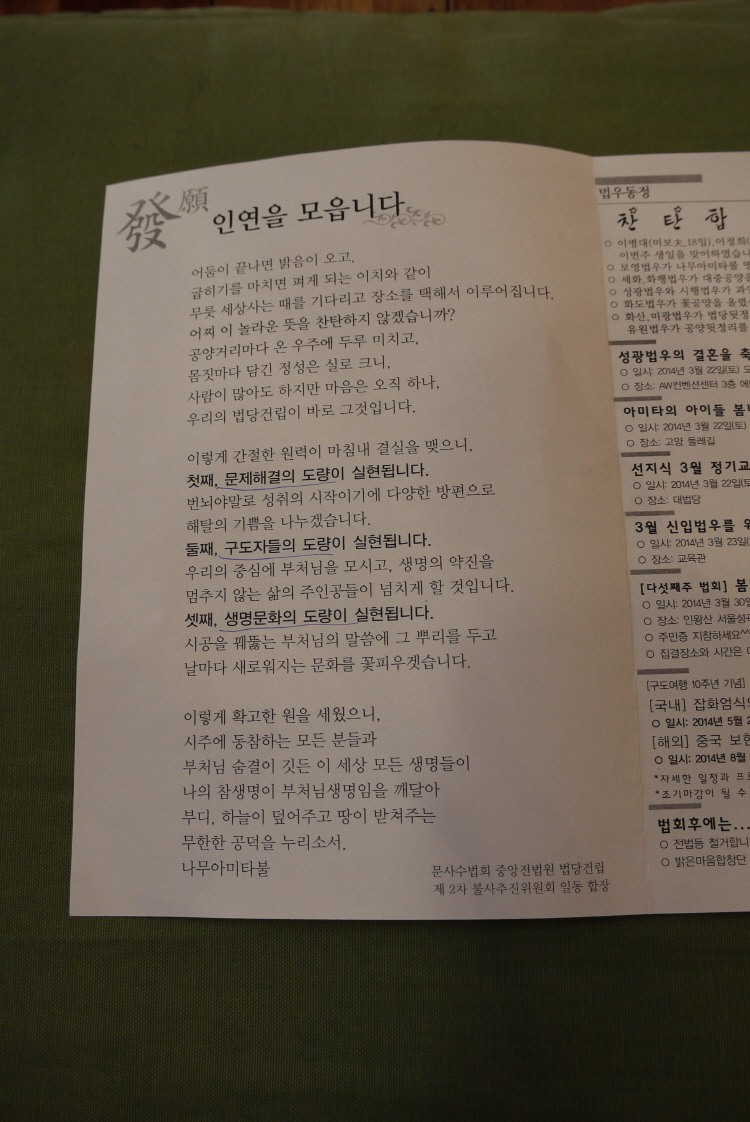 發願 인연을 모읍니다
어둠이 끝나면 밝음이 오고,
굽히기를 마치면 펴게 되는 이치와 같이
무릇 세상사는 때를 기다리고 장소를 택해서 이루어집니다.
어찌 이 놀라운 뜻을 찬탄하지 않겠습니까?
공양거리마다 온 우주에 두루 미치고,
몸짓마다 담긴 정성은 실로 크니,
사람이 많아도 하지만 마음은 오직 하나,
우리의 법당건립이 바로 그것입니다.
이렇게 간절한 원력이 마침내 결실을 맺으니,
첫째, 문제해결의 도량이 실현됩니다.
번뇌야말로 성취의 시작이기에 다양한 방편으로
해탈의 기쁨을 나누겠습니다.
둘째, 구도자들의 도량이 실현됩니다.
우리의 중심에 부처님을 모시고, 생명의 약진을
멈추지 않는 삶의 주인공들이 넘치게 할 것입니다.
셋째, 생명문화의 도량이 실현됩니다.
시공을 꿰뚫는 부처님의 말씀에 그 뿌리를 두고
날마다 새로워지는 문화를 꽃피우겟습니다.
이렇게 확고한 원을 세웠으니,
시주에 동참하는 모든 분들과
부처님 숨결이 깃든 이 세상 모든 생명들이
나의 참생명이 부처님생명임을 깨달아
부디, 하늘이 덮어주고 땅이 받쳐주는
무한한 공덕을 누리소서.
나무아미타불
문사수법회 중앙전법원 법당건립
제 2차 불사추진위원회 일동 합장
법우동정
찬 탄 합
○ 이병대(미보夫,18일),이정희(
이번주 생일을 맞이하였습니
○ 보영법우가 나무아미타불 명
○ 세화,화행법우가 대중공양을
○ 성광법우와 시행법우가 과일
○ 화도법우가 꽃공양을 올렸
○ 화산,미광법우가 법당뒷정
유원법우가 공양뒷정리를
성광법우의 결혼을 축
○ 일시: 2014년 3월 22일(토) 오
○ 장소: AW컨벤션센터 3층 에
아미타의 아이들 봄
○ 일시: 2014년 3월 22일(토)
○ 장소: 고양 둘레길
선지식 3월 정기교
○ 일시: 2014년 3월 22일(토
○ 장소: 대법당
3월 신입법우를 위
○ 일시: 2014년 3월 23일
○ 장소: 교육관
[다섯째주 법회] 봄
○ 일시: 2014년 3월 30일
○ 장소: 인왕산 서울성곽
○ 주민증 지참하세요^^
○ 집결장소와 시간은 다
[구도여행 10주년 기념]
[국내] 잡화엄식
○ 일시: 2014년 5월 2
[해외] 중국 보현
○ 일시: 2014년 8월
*자세한 일정과 프로
*조기마감이 될 수
법회후에는...
○ 전법등 철거합니
○ 밝은마음합창단